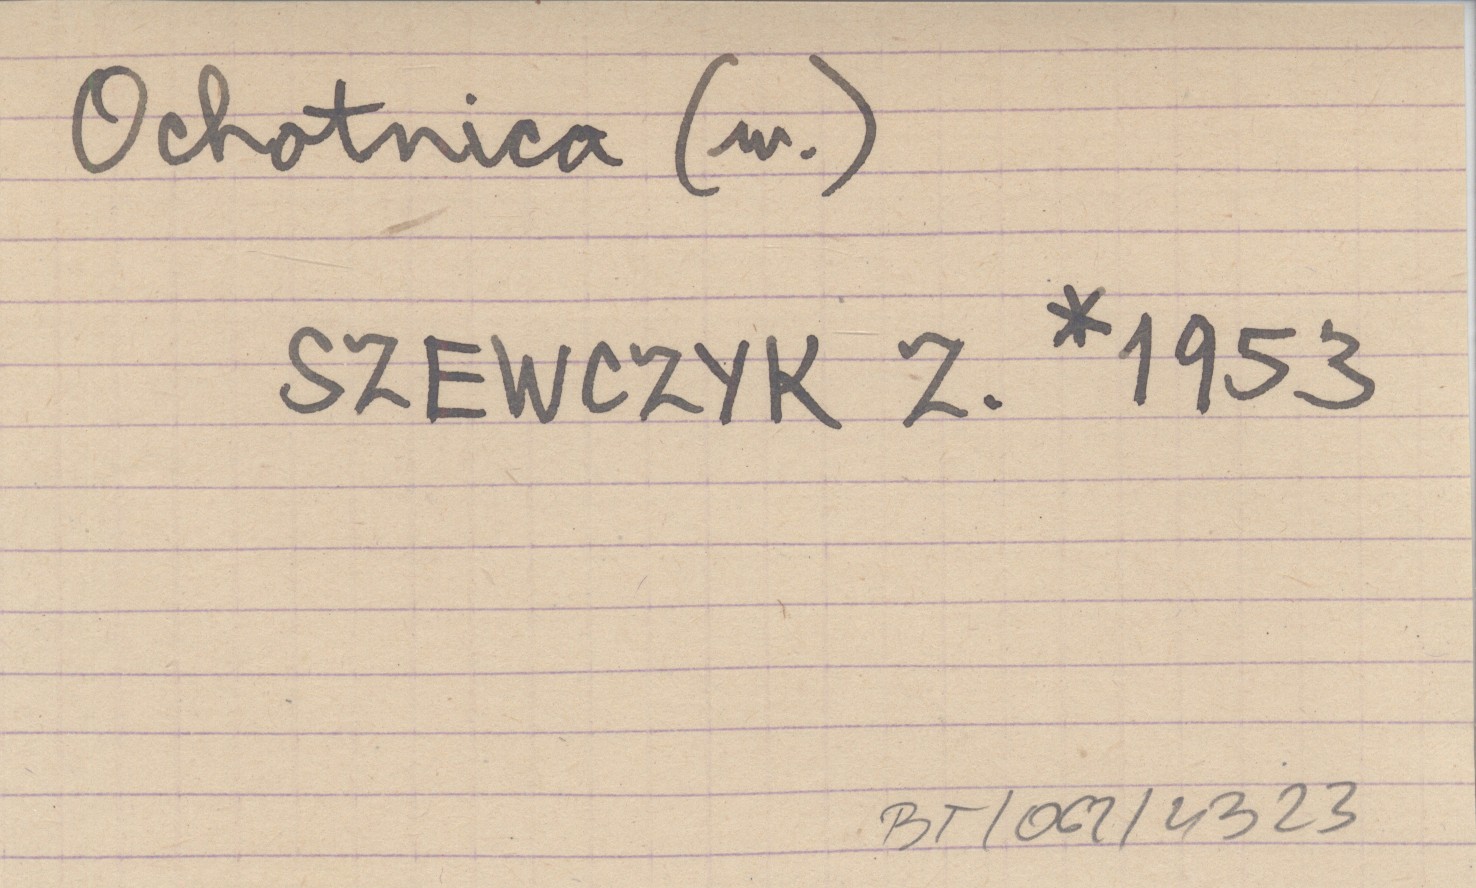 Ochotnica (w.)
SZEWCZYK Z. *1953
BT/067/4323